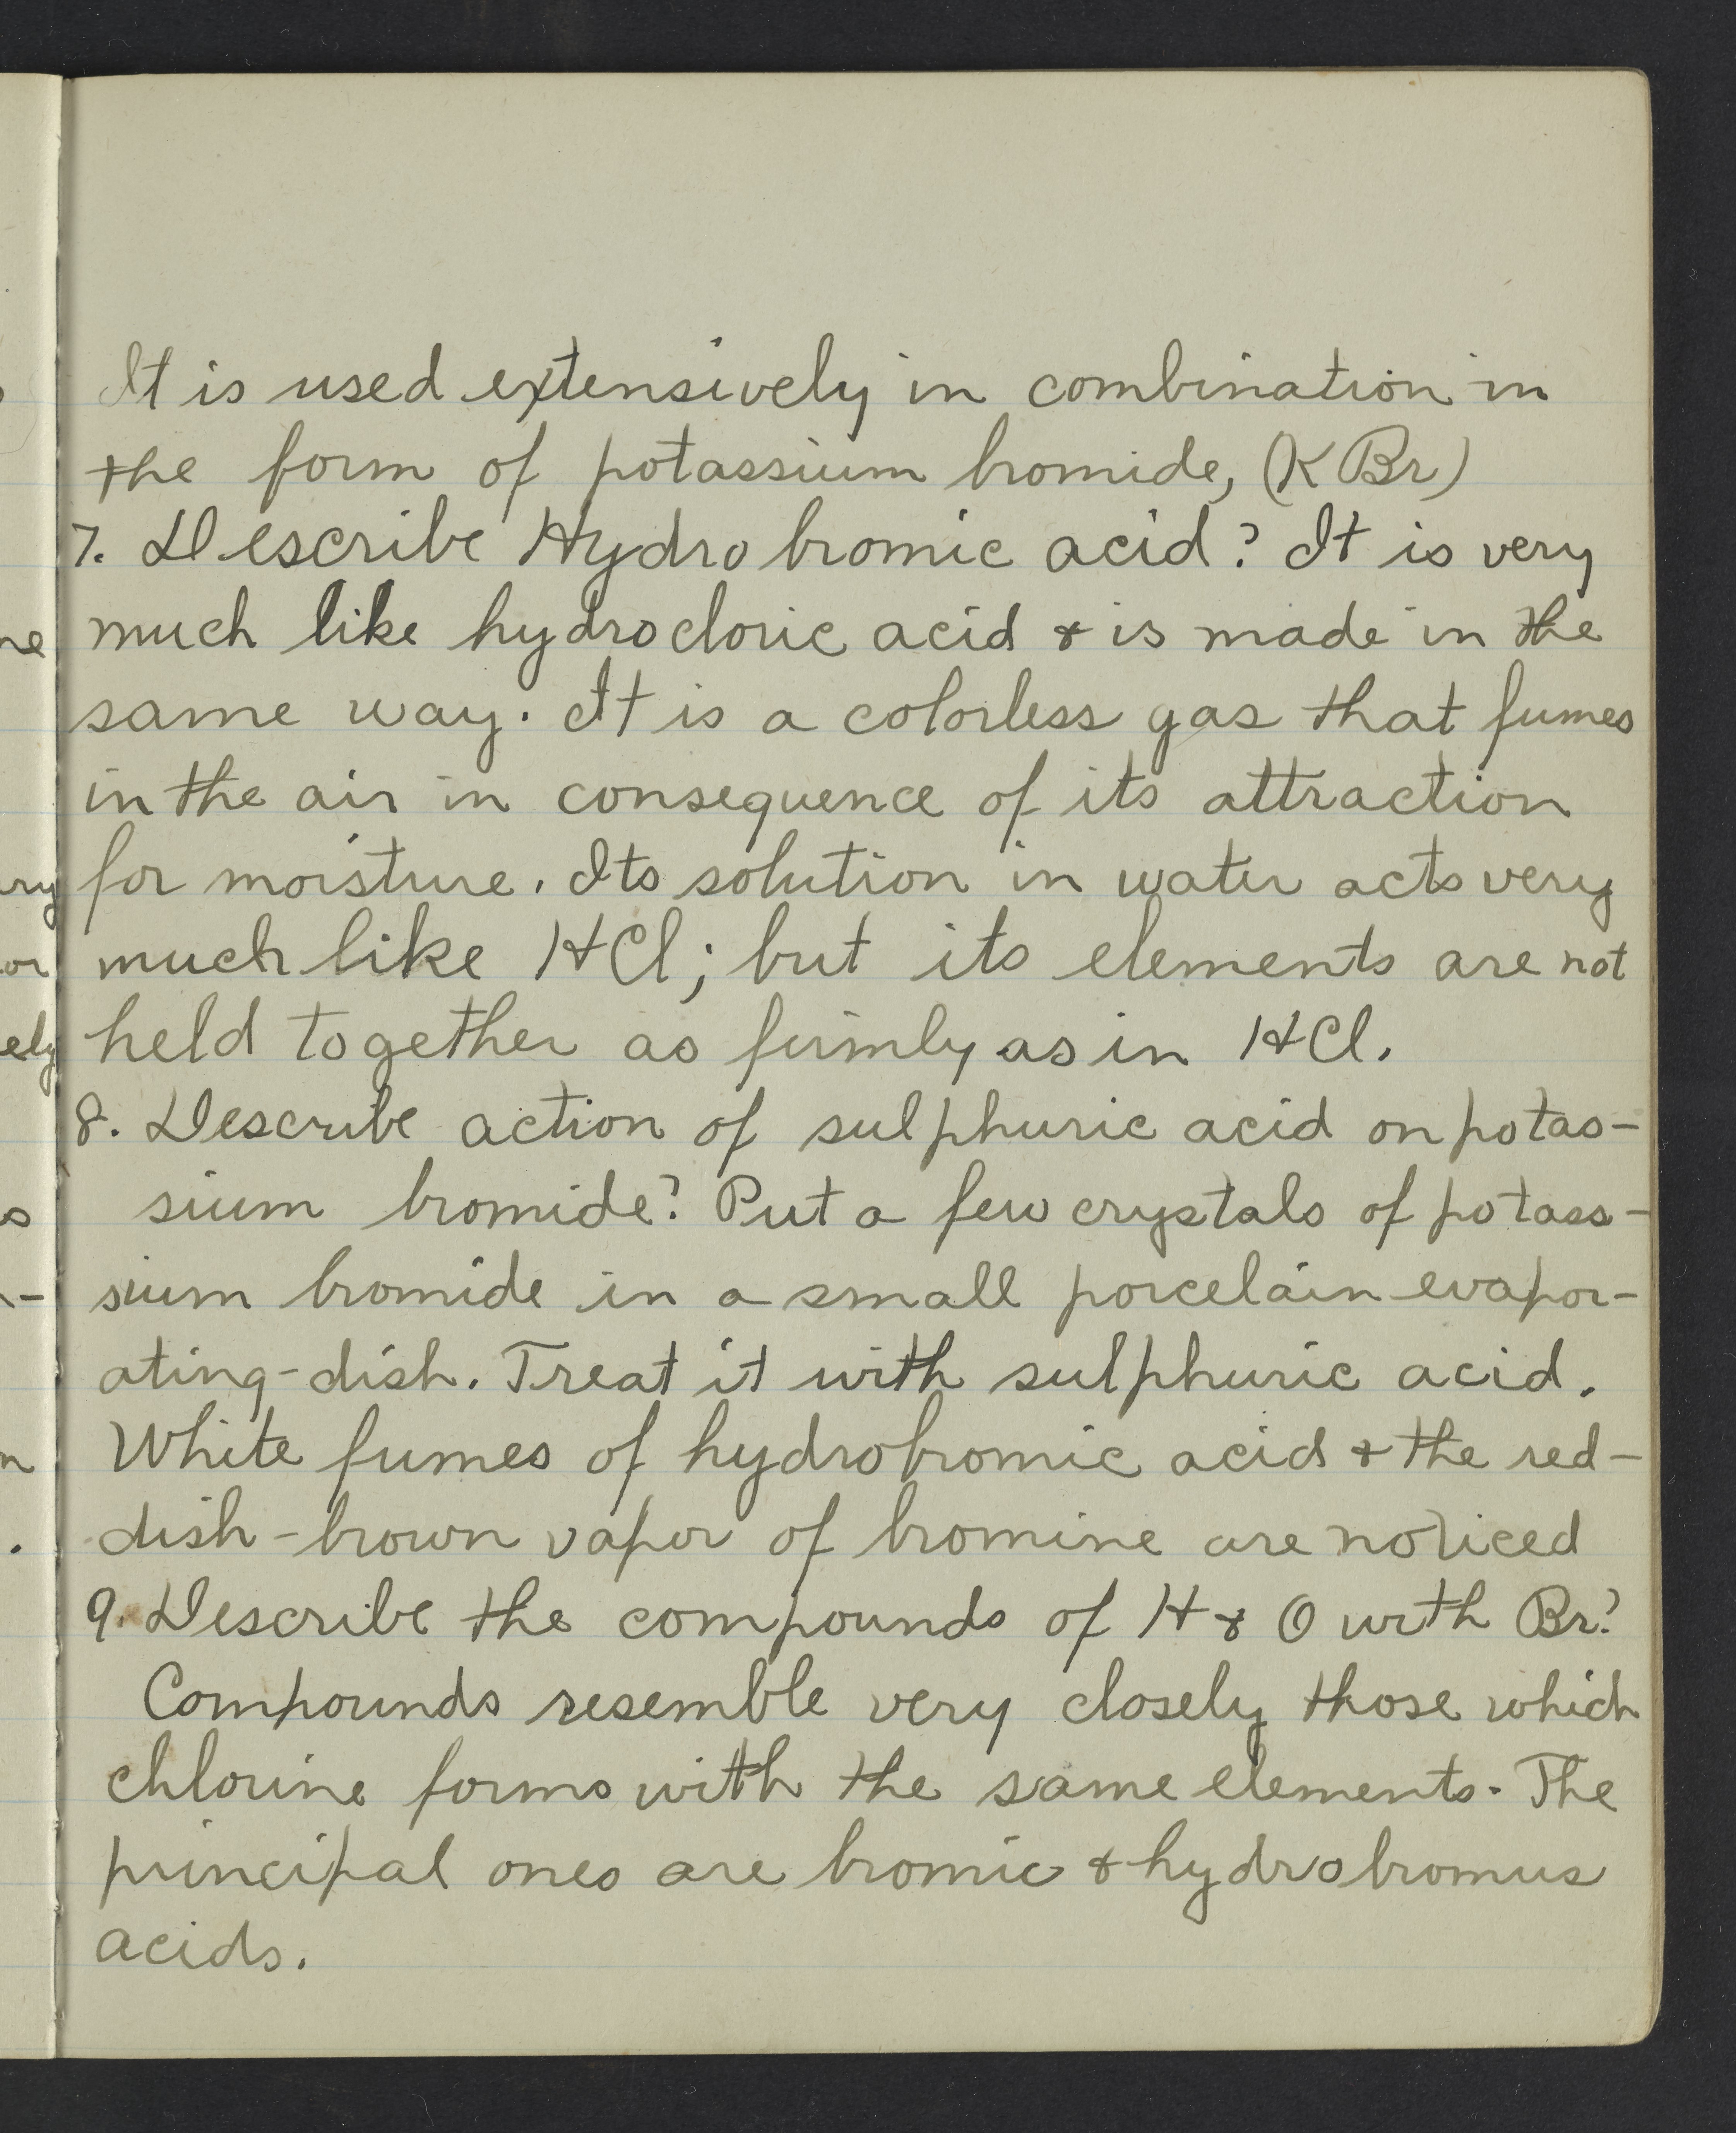 It is used extensively in combination in
the form of potassium bromide, (KBr)
7. Describe Hydrobromic acid? It is very
much like hydrocloric acid & is made in the
same way. It is a colorless gas that fumes
in the air in consequence of its attraction
for moisture. Its solution in water acts very
much like HCl; but its elements are not
held together as firmly as in HCl.
8. Describe action of sulphuric acid on potas-
sium bromide? Put a few crystals of potass-
sium bromide in a small porcelain evapor-
ating-dish. Treat it with sulphuric acid.
White fumes of hydrobromic acid & the red-
dish-brown vapor of bromine are noticed
9. Describe the compounds of H & O with Br?
Compounds resemble very closely those which
chlorine forms with the same elements. The
principal ones are bromic & hydrobromus
acids.